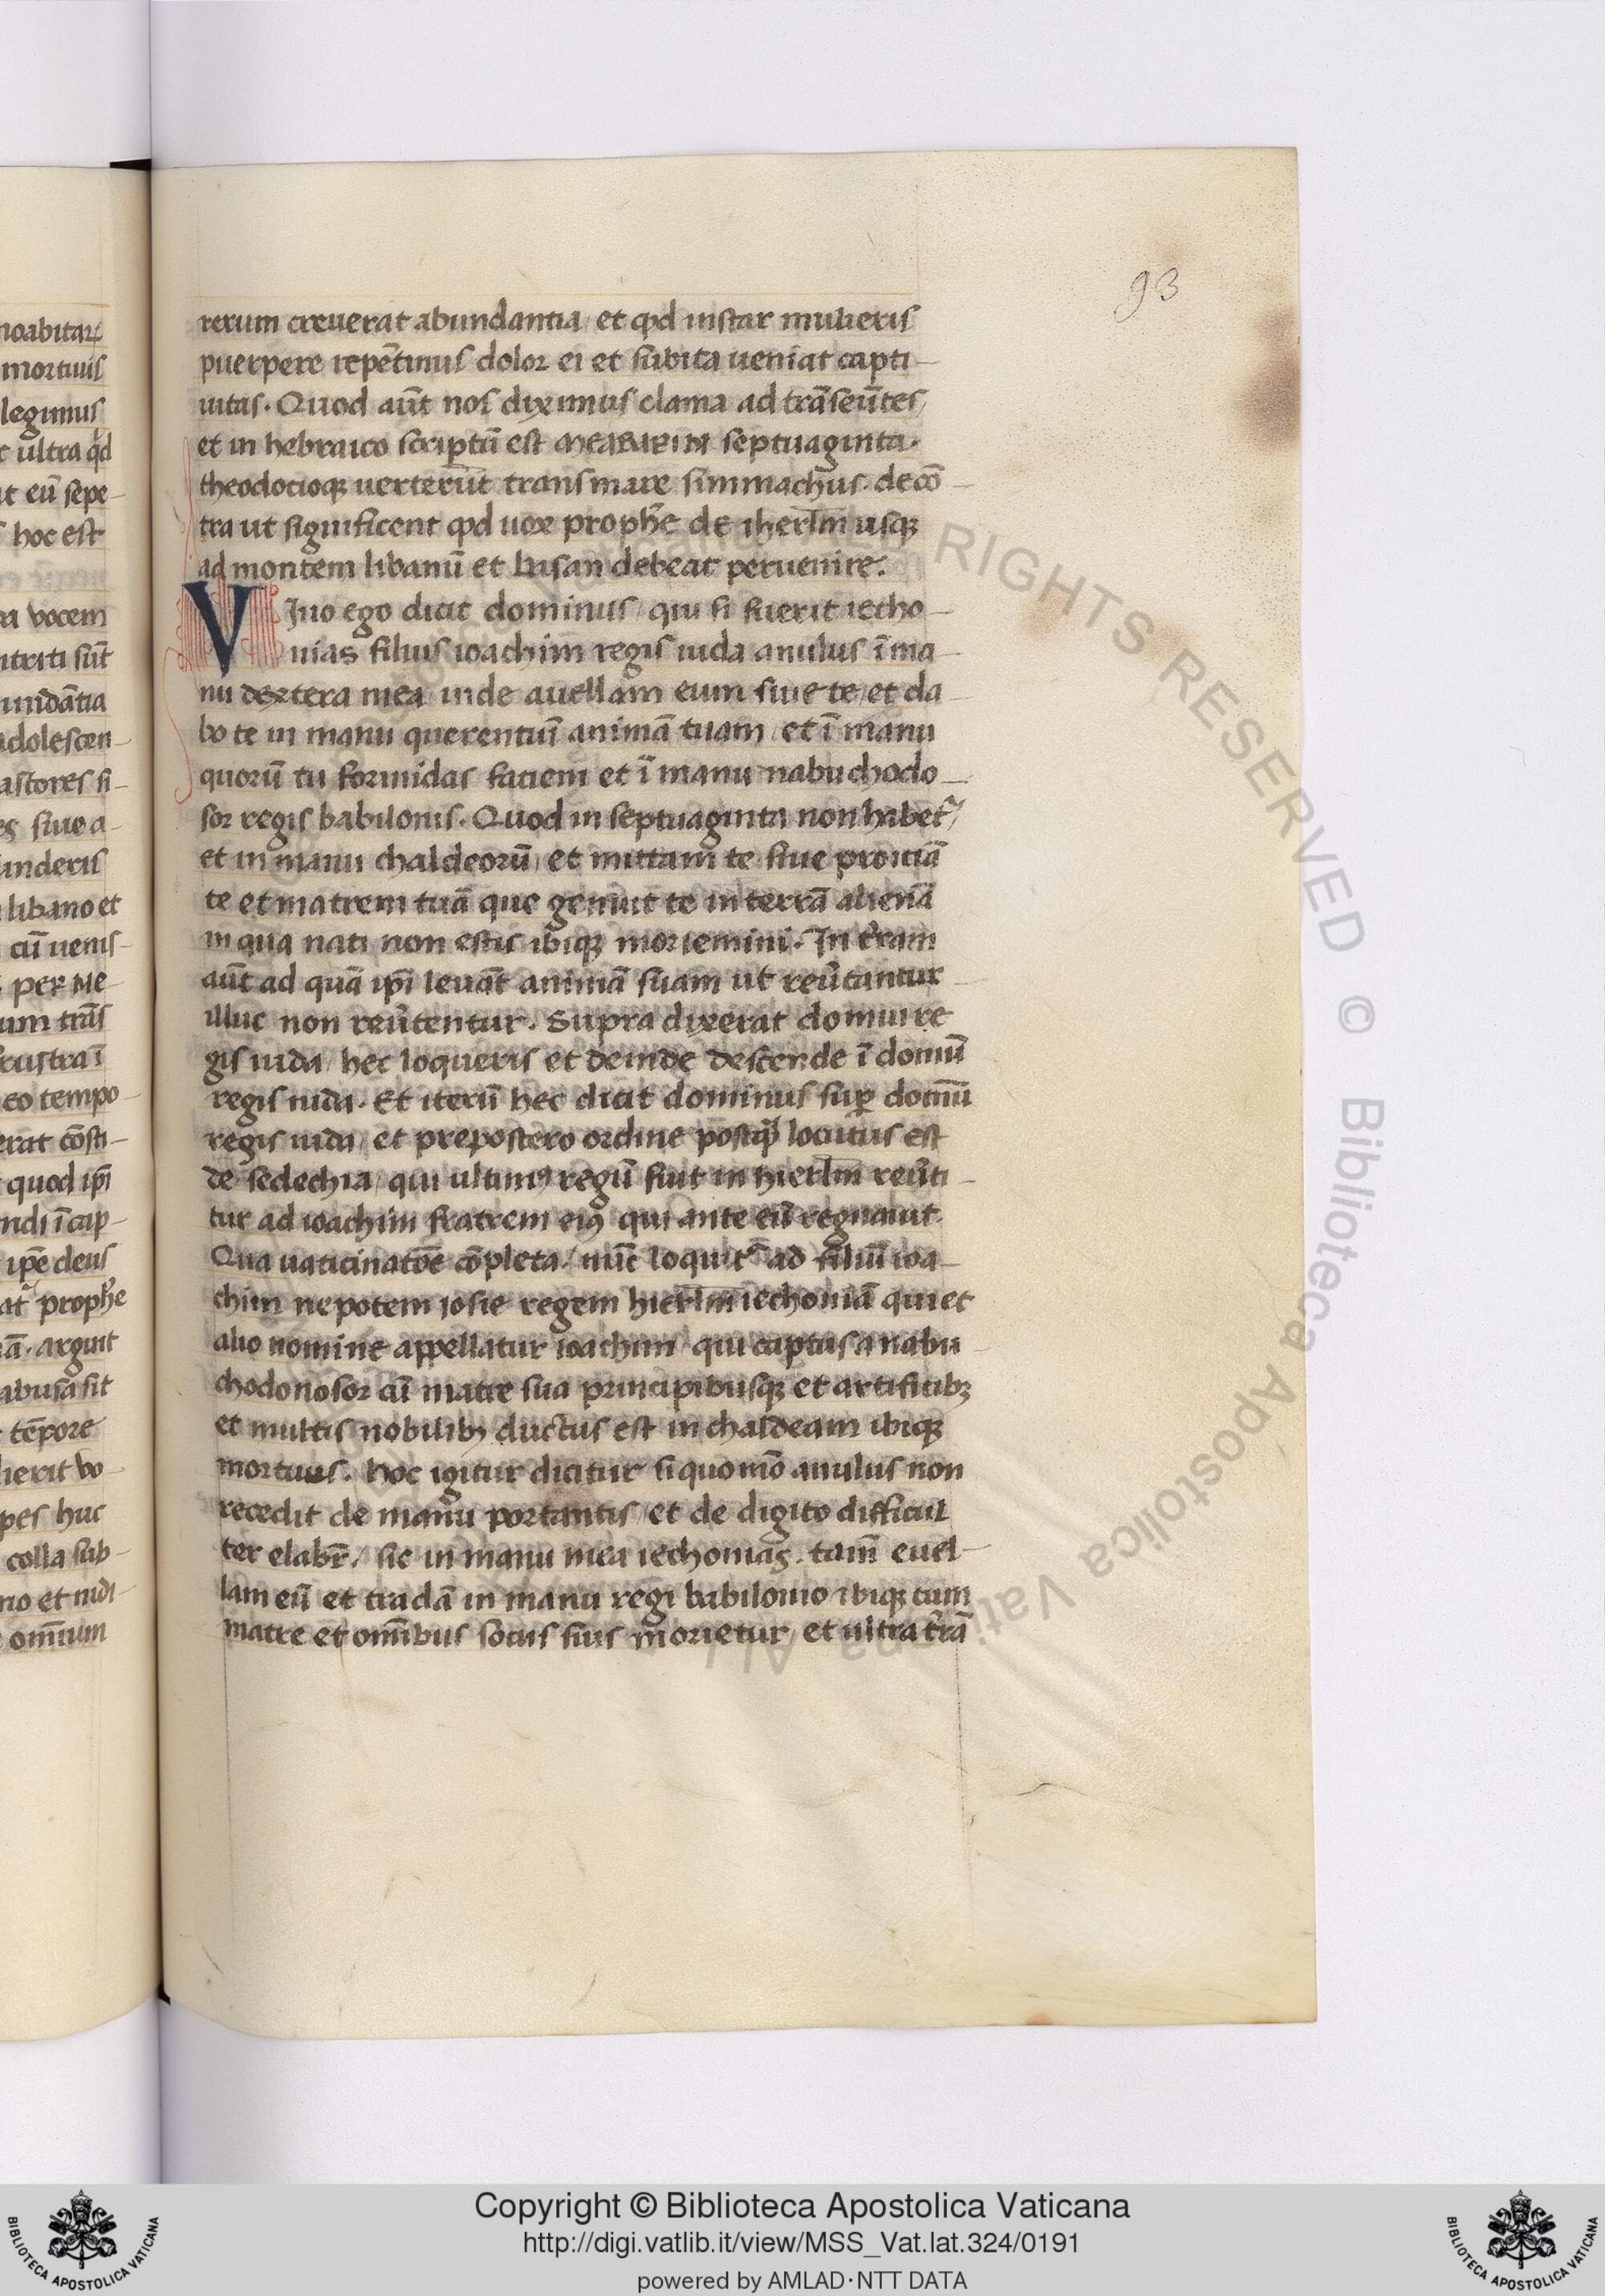 noabitar&
mortuis
legimus
ultra qd
ut eū sepe-
hoc est
vocem
sūt
undātia
adolescen-
astores si-
siue a-
underis
libano et
cū uenis-
PER ME-
um trās
frustra ī
eo tempo-
erat cōsti-
quod ip̄i
ndi ī cap-
ip̄e deus
at prophe
ā. arguit
abusa sit
tēpore
lierit vo-
pes huc
colla sub-
no et nidi-
om̄ium
93
rerum creuerat abundantia, et qd instar mulieris
puerpere repētinus dolor ei et subita ueniat capti-
uitas. Quod aūt nos diximus clama ad trāseūtes,
et in hebraico scriptū est MEABARIM septuaginta.
theodotioq; uerterūt trans mare simmachus. de cō-
tra ut significent qd uox prophe de iherl̄m usq;
ad montem libanū et basan debeat peruenire.
VJuo ego dicit dominus, qui si fuerit iecho-
nias filius ioachim regis iuda anulus ī ma-
nu dextera mea inde auellam eum siue te, et da
bo te in manu querentiū animā tuam, et ī manu
quorū tu formidas faciem et ī manu nabuchodo-
sor regis babilonis. Quod in septuaginta non habet᷑,
et in manu chaldeorū, et mittam te siue proiciā
te et matrem tuā que genuit te in terrā alienā
in qua nati non estis ibiq; moriemini. In t̄ram
aūt ad quā ip̄i leuāt animā suam ut reūtantur
illuc non reūtentur. Supra dixerat domui re
gis iuda, hec loqueris et deinde descende ī domū
regis iuda. Et iterū hec dicit dominus sup domū
regis iuda, et prepostero ordine postq̄ locutus est
de sedechia, qui ultimꝰ regū fuit in hierl̄m reūti-
tur ad ioachim fratrem eiꝰ qui ante eū regnauit.
Qua uaticinatōe cōpleta, nūc loquit᷑ ad filiū ioa-
chim nepotem iosie regem hierl̄m iechoniā qui et
alio nomine appellatur ioachim, qui captus a nabu-
chodonosor cū matre sua principibusq; et artificib;
et multis nobilib; ductus est in chaldeam ibiq;
mortuus. hoc igitur dicitur si quomō anulus non
recedit de manu portantis, et de digito difficul
ter elabr̄, sic in manu mea iechonias. tam̄ euel-
lam eū et tradā in manu regi babilonio ibiq; cum
matre et om̄ibus sociis suis morietur, et ultra t̄rā
ALL RIGHTS RESERVED © Biblioteca Apostolica Vaticana
Copyright © Biblioteca Apostolica Vaticana
http://digi.vatlib.it/view/MSS_Vat.lat.324/0191
powered by AMLAD·NTT DATA
BIBLIOTECA APOSTOLICA VATICANA
BIBLIOTECA APOSTOLICA VATICANA